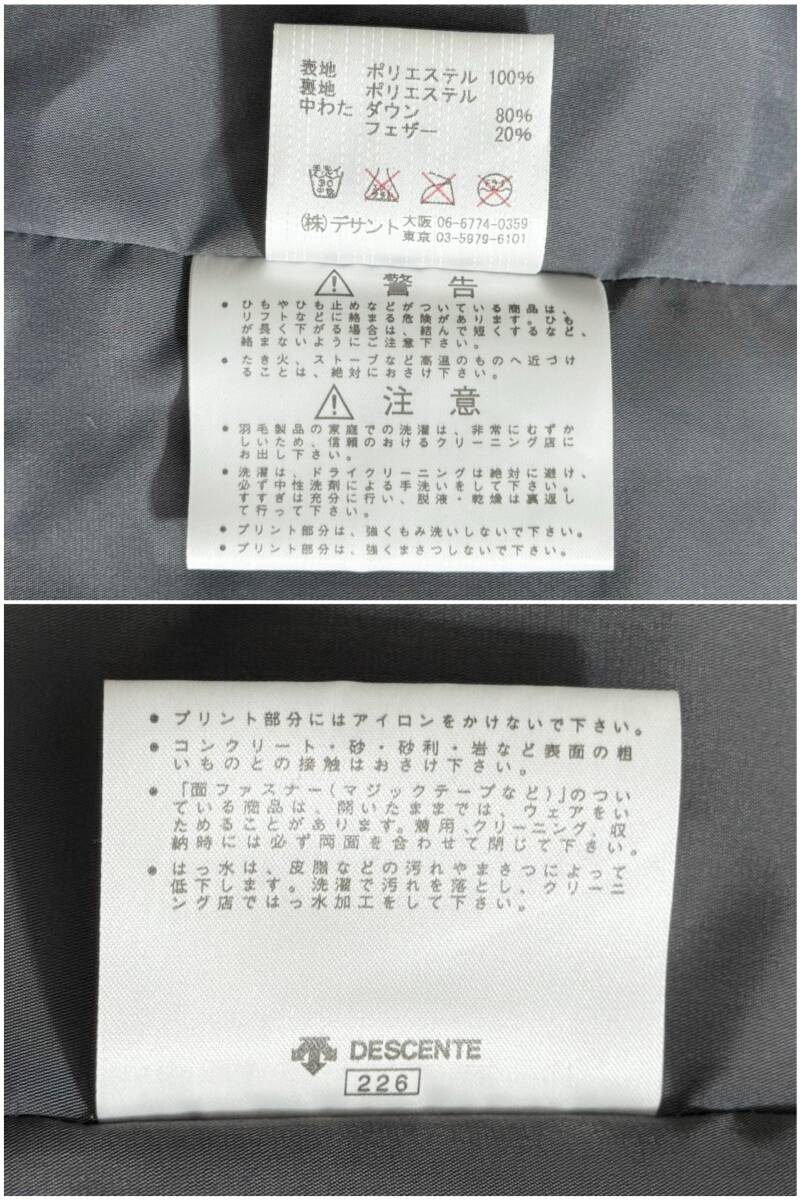 表地 ポリエステル 100%
裏地 ポリエステル
中わた ダウン 80%
フェザー 20%
手洗イ
30
中性
(株)デサント 大阪 06-6774-0359
東京 03-5979-6101
警告
• ひもやひも止めなどがついている商品は、
リフトなどに絡まる危険があります。ひも
が長く下がる場合は、結んで短くするなど、
絡まないようにご注意下さい。
• たき火、ストーブなど高温のものへ近づけ
ることは、絶対におさけ下さい。
注意
• 羽毛製品の家庭での洗濯は、非常にむずか
しいため、信頼のおけるクリーニング店に
お出し下さい。
• 洗濯は、ドライクリーニングは絶対に避け、
必ず中性洗剤による手洗いをして下さい。
すすぎは充分に行い、脱液・乾燥は裏返し
て行って下さい。
• プリント部分は、強くもみ洗いしないで下さい。
• プリント部分は、強くまさつしないで下さい。
• プリント部分にはアイロンをかけないで下さい。
• コンクリート・砂・砂利・岩など表面の粗
いものとの接触はおさけ下さい。
• 「面ファスナー(マジックテープなど)」のつい
ている商品は、開いたままでは、ウェアをい
ためることがあります。着用、クリーニング、収
納時には必ず両面を合わせて閉じて下さい。
• はっ水は、皮脂などの汚れやまさつによって
低下します。洗濯で汚れを落とし、クリーニ
ング店ではっ水加工をして下さい。
DESCENTE
226